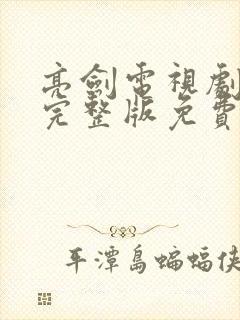 亮劍電視劇
完整版免費
平潭島蝙蝠俠